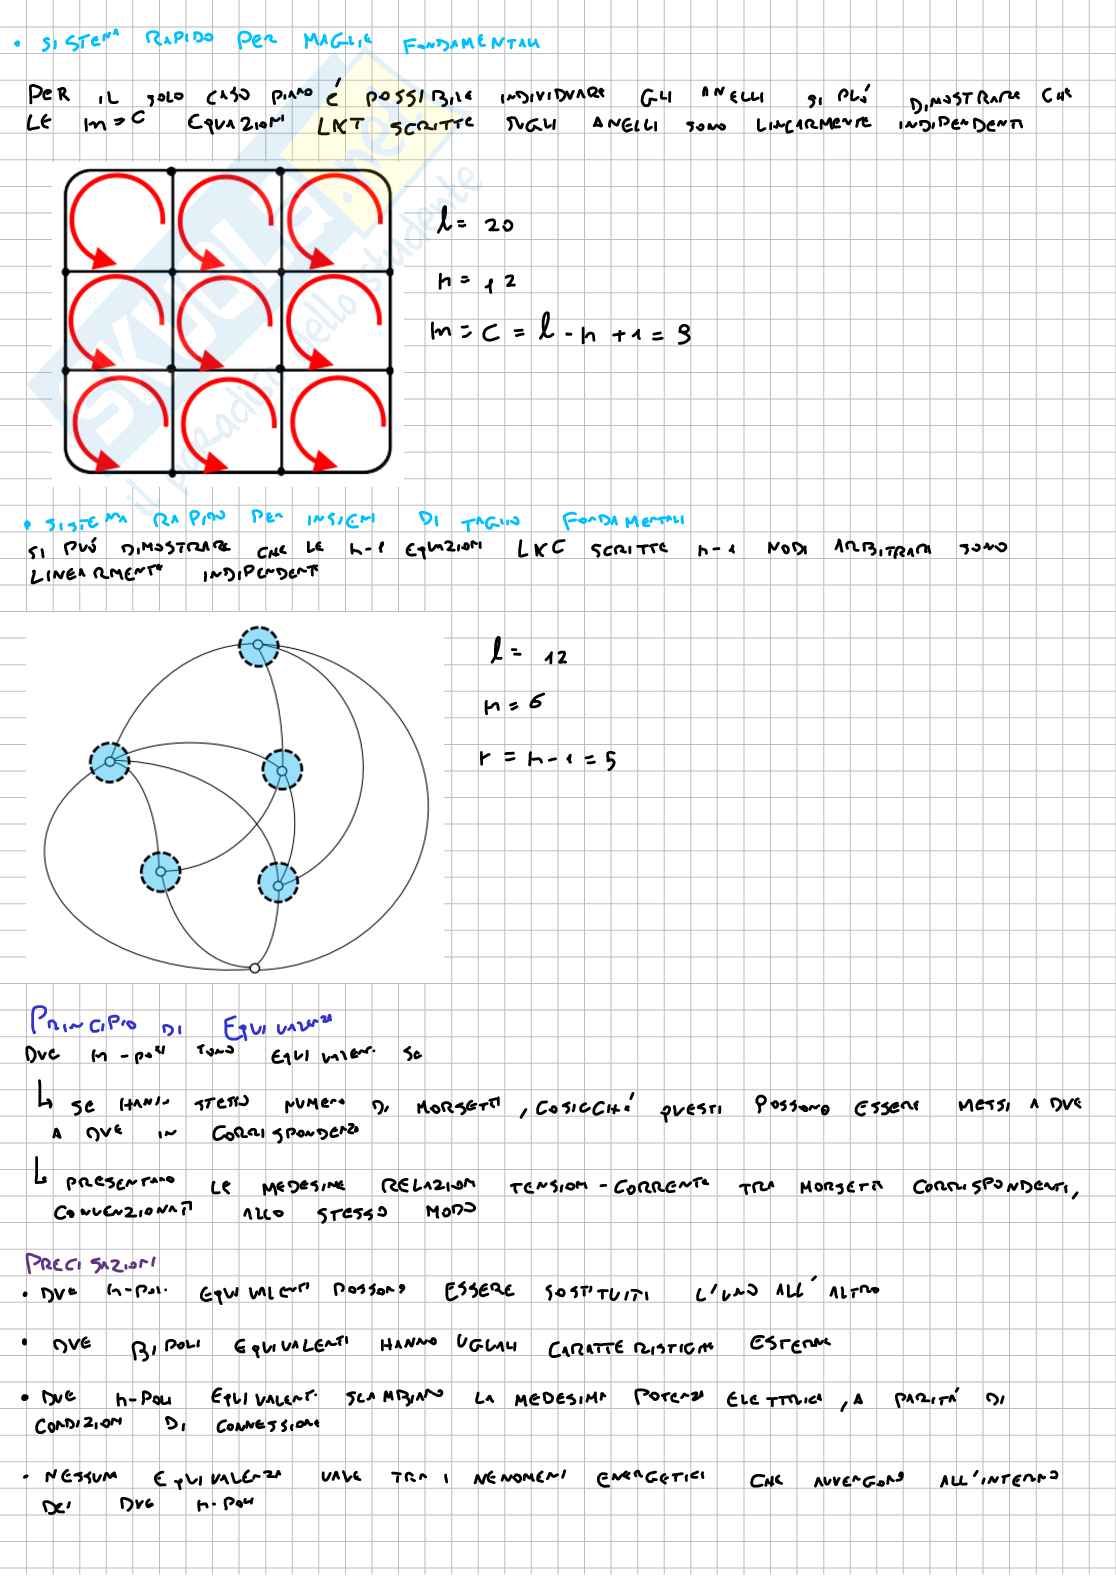 • SISTEMA RAPIDO PER MAGLIE FONDAMENTALI
PER IL SOLO CASO PIANO É POSSIBILE INDIVIDUARE GLI ANELLI SI PUÓ DIMOSTRARE CHE
LE m=C EQUAZIONI LKT SCRITTE SUGLI ANELLI SONO LINEARMENTE INDIPENDENTI
SKUOLA.net
il paradiso dello studente
l = 20
n = 12
m = C = l - n + 1 = 9
• SISTEMA RAPIDO PER INSIEMI DI TAGLIO FONDAMENTALI
SI PUÓ DIMOSTRARE CHE LE n-1 EQUAZIONI LKC SCRITTE n-1 NODI ARBITRARI SONO
LINEARMENTE INDIPENDENTI
l = 12
n = 6
r = n-1 = 5
PRINCIPIO DI EQUIVALENZA
DUE n-POLI SONO EQUIVALENTI SE
↳ SE HANNO STESSO NUMERO DI MORSETTI, COSICCHÉ QUESTI POSSONO ESSERE MESSI A DUE
A DUE IN CORRISPONDENZA
↳ PRESENTANO LE MEDESIME RELAZIONI TENSIONI-CORRENTE TRA MORSETTI CORRISPONDENTI,
CONVENZIONATI ALLO STESSO MODO
PRECISAZIONI
• DUE n-POLI EQUIVALENTI POSSONO ESSERE SOSTITUITI L'UNO ALL'ALTRO
• DUE BIPOLI EQUIVALENTI HANNO UGUALI CARATTERISTICHE ESTERNE
• DUE n-POLI EQUIVALENTI SCAMBIANO LA MEDESIMA POTENZA ELETTRICA, A PARITÁ DI
CONDIZIONI DI CONNESSIONE
• NESSUNA EQUIVALENZA VALE TRA I NENOMENI ENERGETICI CHE AVVENGONO ALL'INTERNO
DEI DUE n-POLI